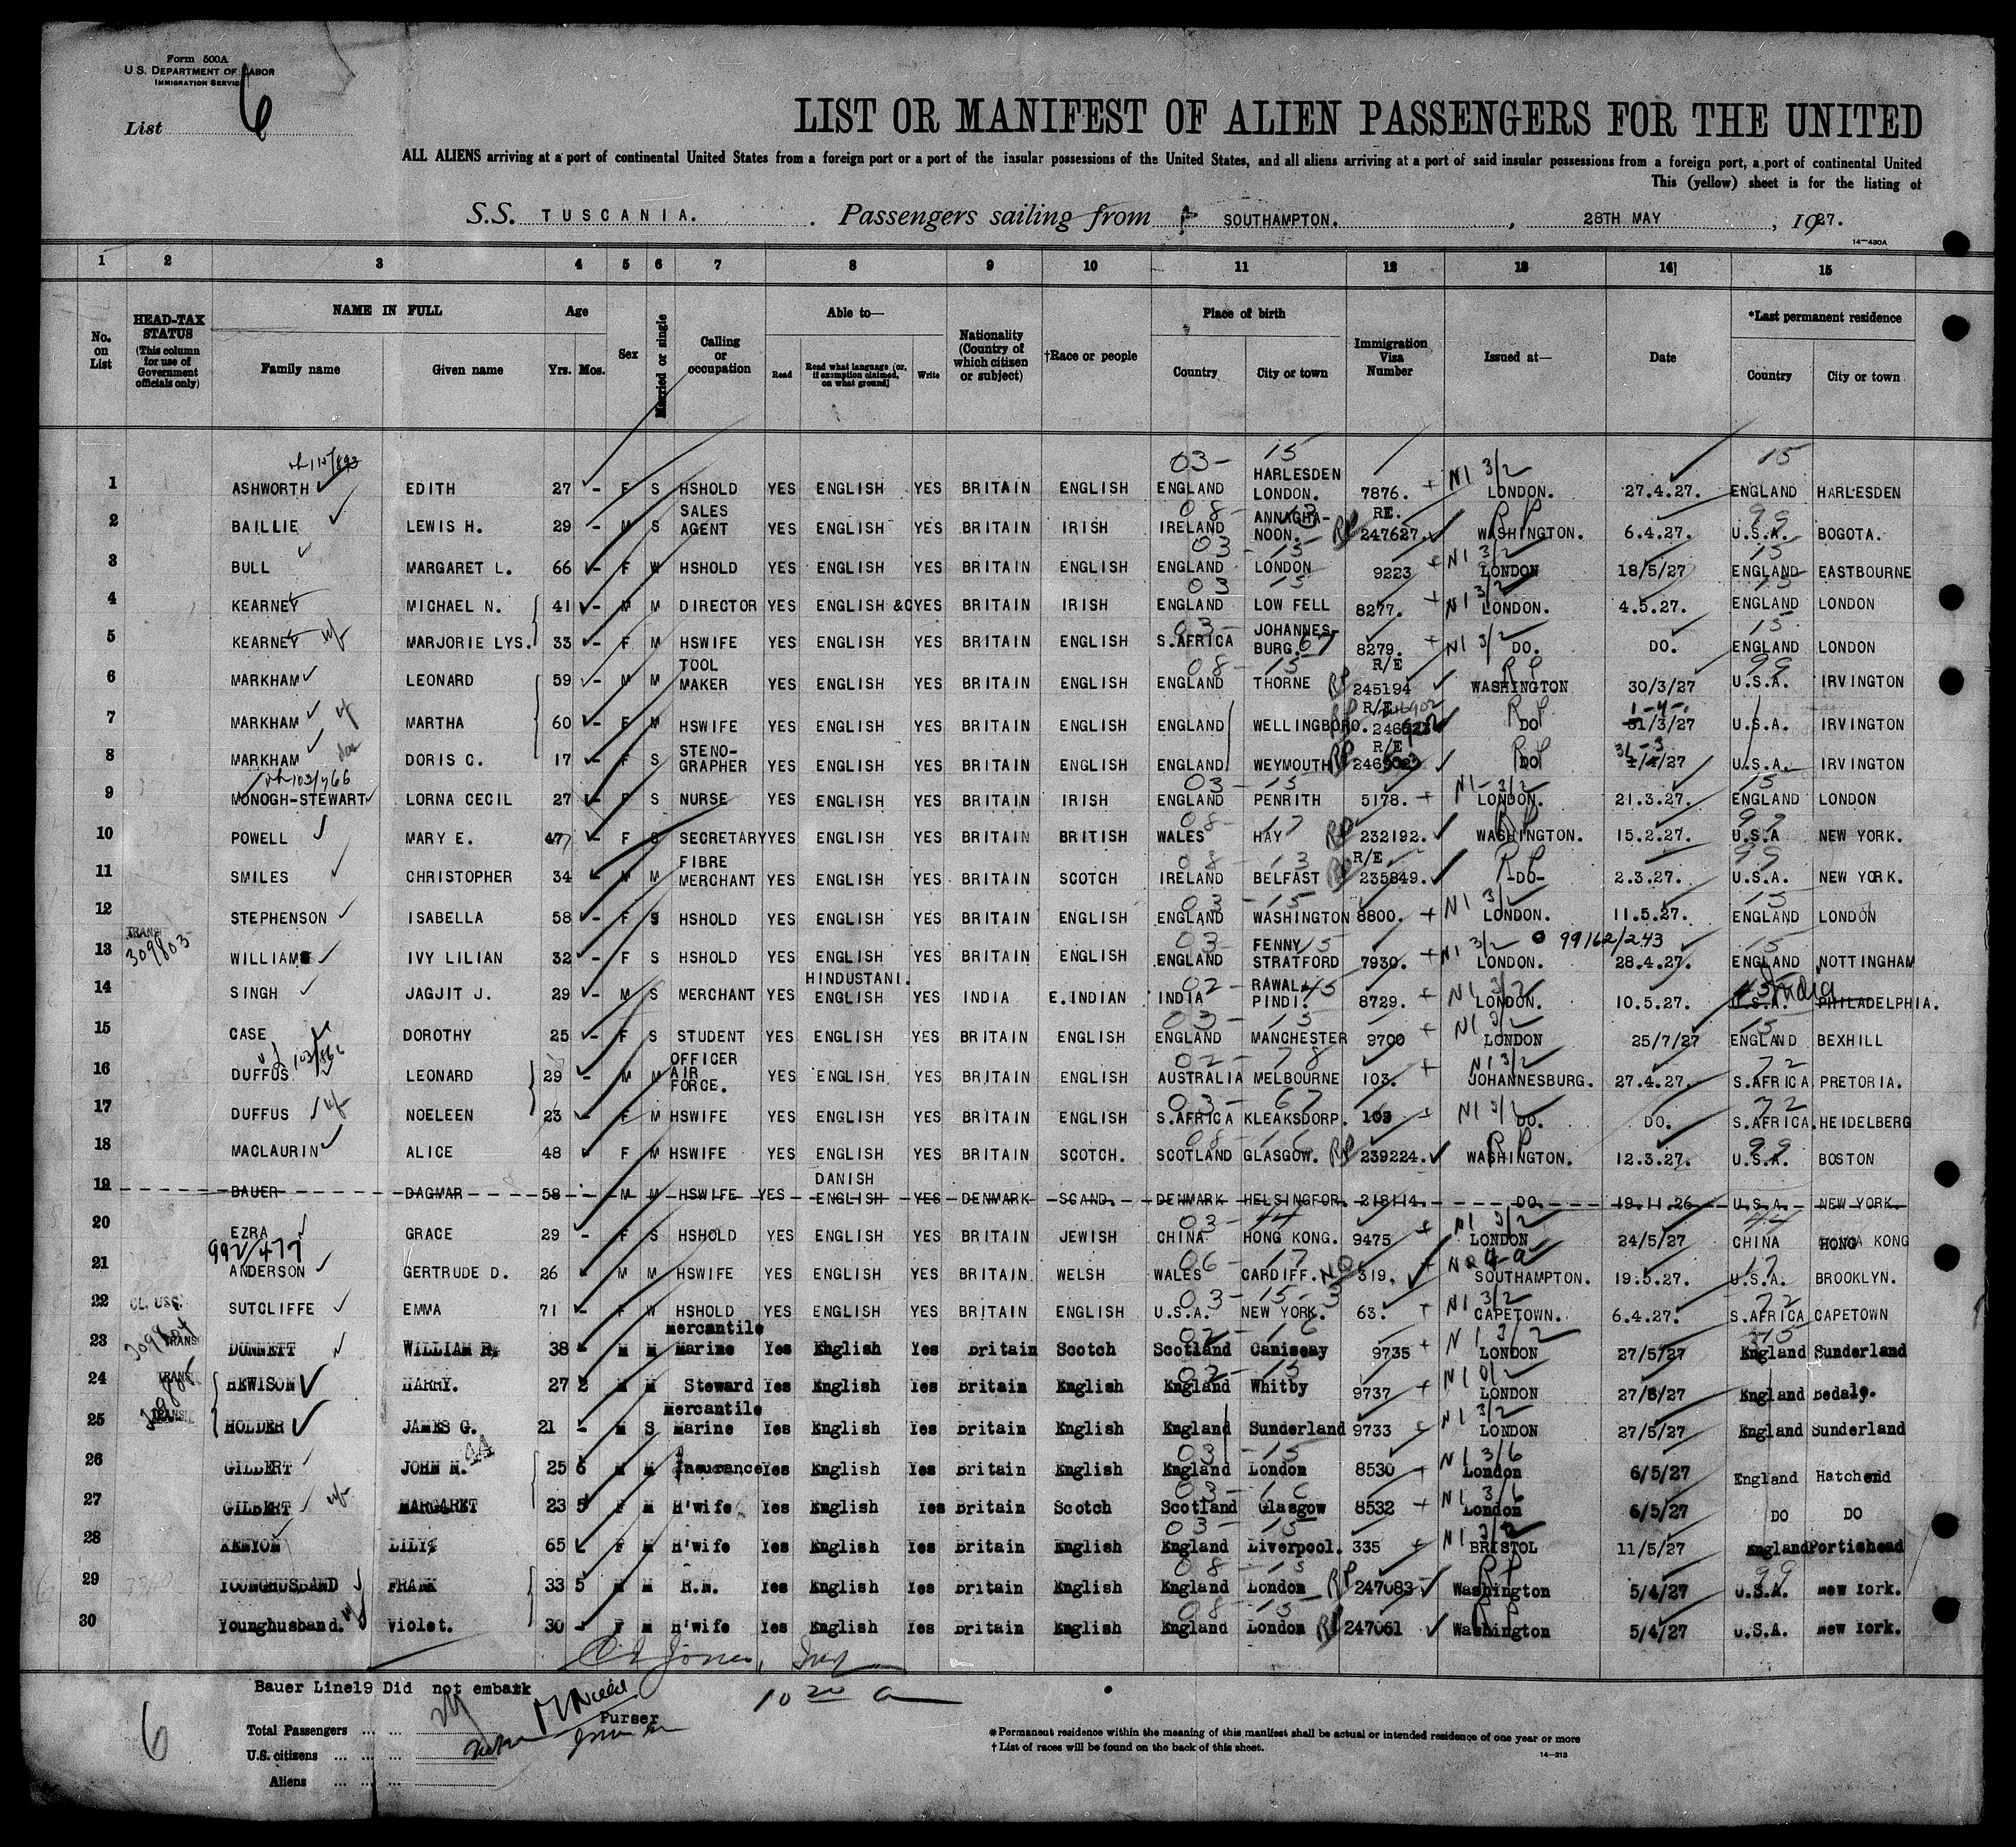 Form 500A
U.S. DEPARTMENT OF LABOR
IMMIGRATION SERVICE
List 6
LIST OR MANIFEST OF ALIEN PASSENGERS FOR THE UNITED
ALL ALIENS arriving at a port of continental United States from a foreign port or a port of the insular possessions of the United States, and all aliens arriving at a port of said insular possessions from a foreign port, a port of continental United
This (yellow) sheet is for the listing of
S.S. TUSCANIA. Passengers sailing from SOUTHAMPTON. , 28TH MAY , 1927.
14—430A
1 2 3 4 5 6 7 8 9 10 11 12 13 14 15
No. on List
HEAD-TAX STATUS (This column for use of Government officials only)
NAME IN FULL
Family name Given name
Age
Yrs. Mos.
Sex
Married or single
Calling or occupation
Able to—
Read Read what language [or, if exemption claimed, on what ground] Write
Nationality (Country of which citizen or subject)
†Race or people
Place of birth
Country City or town
Immigration Visa Number
Issued at—
Date
*Last permanent residence
Country City or town
03- 15 NI 3/2 15
1 ASHWORTH EDITH 27 - F S HSHOLD YES ENGLISH YES BRITAIN ENGLISH ENGLAND HARLESDEN LONDON. 7876. LONDON. 27.4.27. ENGLAND HARLESDEN
08- 13 RP 99
2 BAILLIE LEWIS H. 29 - M S SALES AGENT YES ENGLISH YES BRITAIN IRISH IRELAND ANNAGHA-NOON. RE. 247627. WASHINGTON. 6.4.27. U.S.A. BOGOTA.
03 - 15 NI 3/2 15
3 BULL MARGARET L. 66 - F W HSHOLD YES ENGLISH YES BRITAIN ENGLISH ENGLAND LONDON 9223 LONDON 18/5/27 ENGLAND EASTBOURNE
03 15 NI 3/2 15
4 KEARNEY MICHAEL N. 41 - M M DIRECTOR YES ENGLISH &C YES BRITAIN IRISH ENGLAND LOW FELL 8277. LONDON. 4.5.27. ENGLAND LONDON
03- 67 NI 3/2 15
5 KEARNEY MARJORIE LYS. 33 - F M HSWIFE YES ENGLISH YES BRITAIN ENGLISH S.AFRICA JOHANNES-BURG. 8279. DO. DO. ENGLAND LONDON
08- 15 RP 99
6 MARKHAM LEONARD 59 - M M TOOL MAKER YES ENGLISH YES BRITAIN ENGLISH ENGLAND THORNE R/E 245194 WASHINGTON 30/3/27 U.S.A. IRVINGTON
7 MARKHAM MARTHA 60 - F M HSWIFE YES ENGLISH YES BRITAIN ENGLISH ENGLAND WELLINGBORO. R/E DO 31/3/27 U.S.A. IRVINGTON
8 MARKHAM DORIS C. 17 - F S STENO-GRAPHER YES ENGLISH YES BRITAIN ENGLISH ENGLAND WEYMOUTH R/E DO U.S.A. IRVINGTON
03- 15 NI-3/2 15
9 MONOGH-STEWART LORNA CECIL 27 - F S NURSE YES ENGLISH YES BRITAIN IRISH ENGLAND PENRITH 5178. LONDON. 21.3.27. ENGLAND LONDON
08- 17 RP 99
10 POWELL MARY E. 47 F S SECRETARY YES ENGLISH YES BRITAIN BRITISH WALES HAY 232192. WASHINGTON. 15.2.27. U.S.A NEW YORK.
08 - 13 RP 99
11 SMILES CHRISTOPHER 34 M M FIBRE MERCHANT YES ENGLISH YES BRITAIN SCOTCH IRELAND BELFAST R/E. 235849. -DO- 2.3.27. U.S.A. NEW YORK.
03 - 15 NI 3/2 15
12 STEPHENSON ISABELLA 58 - F S HSHOLD YES ENGLISH YES BRITAIN ENGLISH ENGLAND WASHINGTON 8800. LONDON. 11.5.27. ENGLAND LONDON
TRANSIT 309803 03- 15 NI 3/2 99162/243 15
13 WILLIAMS IVY LILIAN 32 - F S HSHOLD YES ENGLISH YES BRITAIN ENGLISH ENGLAND FENNY STRATFORD 7930. LONDON. 28.4.27. ENGLAND NOTTINGHAM
02- 45 NI 3/2 45 India
14 SINGH JAGJIT J. 29 - M S MERCHANT YES HINDUSTANI. ENGLISH YES INDIA E.INDIAN INDIA RAWAL PINDI. 8729. LONDON. 10.5.27. U.S.A. PHILADELPHIA.
03- 15 NI 3/2 15
15 CASE DOROTHY 25 - F S STUDENT YES ENGLISH YES BRITAIN ENGLISH ENGLAND MANCHESTER 9700 LONDON 25/7/27 ENGLAND BEXHILL
02- 78 NI 3/2 72
16 DUFFUS LEONARD 29 - M M OFFICER AIR FORCE. YES ENGLISH YES BRITAIN ENGLISH AUSTRALIA MELBOURNE 103. JOHANNESBURG. 27.4.27. S.AFRICA PRETORIA.
03- 67 NI 3/2 72
17 DUFFUS NOELEEN 23 - F M HSWIFE YES ENGLISH YES BRITAIN ENGLISH S.AFRICA KLEAKSDORP. 103 DO. DO. S.AFRICA. HEIDELBERG
08- 16 RP 99
18 MACLAURIN ALICE 48 F M HSWIFE YES ENGLISH YES BRITAIN SCOTCH. SCOTLAND GLASGOW. 239224. WASHINGTON. 12.3.27. U.S.A. BOSTON
19 BAUER DAGMAR 58 M M HSWIFE YES DANISH ENGLISH YES DENMARK SCAND. DENMARK HELSINGFOR. 218114. DO. 19.11.26 U.S.A. NEW YORK.
03- 44 NI 3/2 44
20 EZRA GRACE 29 - F S HSHOLD YES ENGLISH YES BRITAIN JEWISH CHINA HONG KONG. 9475 LONDON 24/5/27 CHINA HONG KONG
06- 17 17
21 ANDERSON GERTRUDE D. 26 M M HSWIFE YES ENGLISH YES BRITAIN. WELSH WALES CARDIFF. 319. SOUTHAMPTON. 19.5.27. U.S.A. BROOKLYN.
03- 15 NI 3/2 72
22 SUTCLIFFE EMMA 71 - F W HSHOLD YES ENGLISH YES BRITAIN ENGLISH U.S.A. NEW YORK. 63. CAPETOWN. 6.4.27. S.AFRICA CAPETOWN
02- 16 NI 3/2 15
23 DUNNETT WILLIAM R. 38 M M mercantile Marine Yes English Yes Britain Scotch Scotland Canisbay 9735 LONDON 27/5/27 England Sunderland
24 HEWISON HARRY. 27 2 M M Steward Yes English Yes Britain English England Whitby 9737 LONDON 27/5/27 England Bedale.
25 HOLDER JAMES G. 21 - M S Mercantile Marine Yes English Yes Britain English England Sunderland 9733 LONDON 27/5/27 England Sunderland
03 - 15 NI 3/6
26 GILBERT JOHN N. 25 6 M M Insurance Yes English Yes Britain English England London 8530 London 6/5/27 England Hatchend
03- 16 NI 3/6
27 GILBERT MARGARET 23 5 F M H'wife Yes English Yes Britain Scotch Scotland Glasgow 8532 London 6/5/27 DO DO
03- 15 NI 3/2
28 KENYON LILY 65 F M H'wife Yes English Yes Britain English England Liverpool. 335 BRISTOL 11/5/27 England Portishead
08- 15 RP 99
29 YOUNGHUSBAND FRANK 33 5 M M R.N. Yes English Yes Britain English England London 247083 Washington 5/4/27 U.S.A. New York.
08- 15 RP
30 Younghusband. Violet. 30 - F M H'wife Yes English Yes Britain English England London 247061 Washington 5/4/27 U.S.A. New York.
Bauer Line19 Did not embark
Purser
6
Total Passengers
U.S. citizens
Aliens
*Permanent residence within the meaning of this manifest shall be actual or intended residence of one year or more
†List of races will be found on the back of this sheet.
14—213